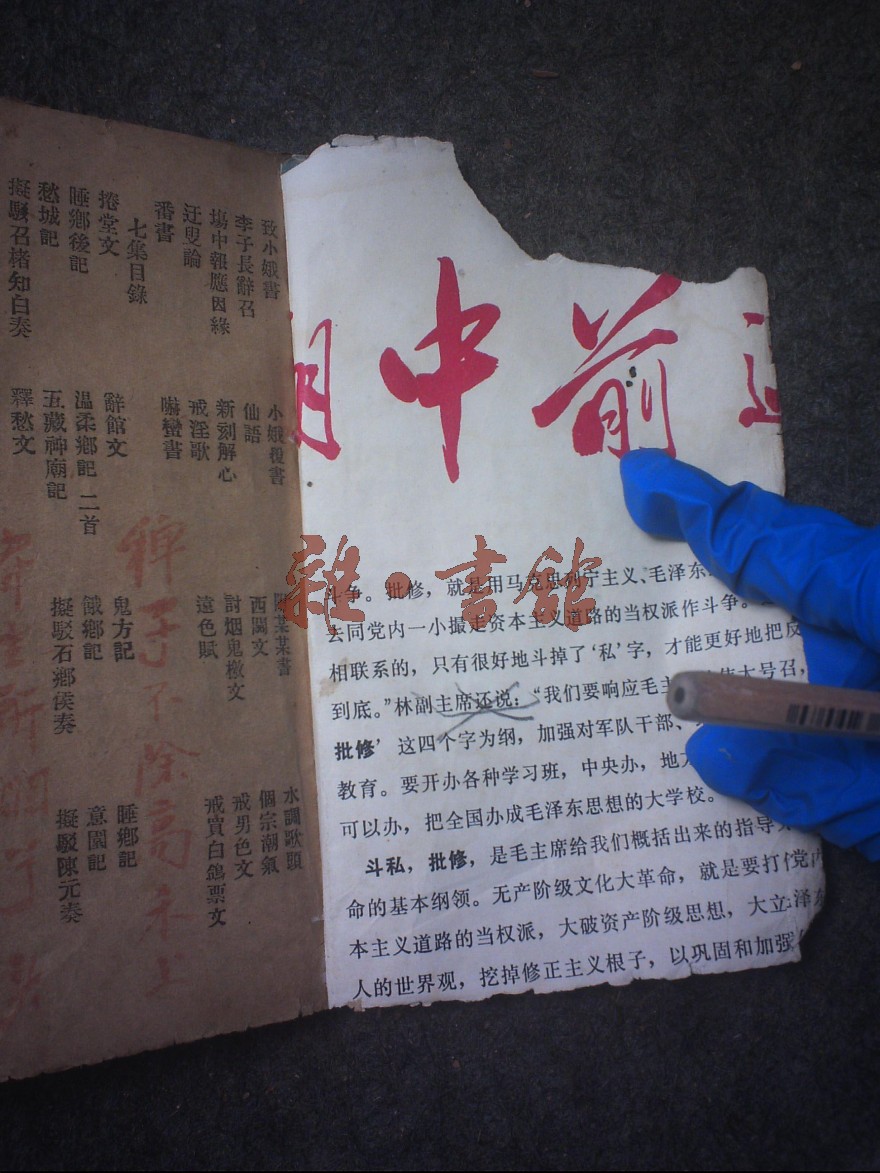 致小娥書 小娥覆書 水調歌頭
李子長辭召 仙語 西閩文 個宗潮氣
塲中報應因緣 新刻解心 討烟鬼檄文 戒男色文
迂叟論 戒淫歌 遠色賦 戒賣白鴿票文
番書 嚇蠻書
七集目錄
捲堂文 辭館文 鬼方記 睡鄉記
睡鄉後記 温柔鄉記 二首 餓鄉記 意園記
愁城記 五藏神廟記 擬駁石鄉侯奏 擬駁陳元奏
擬駁召楮知白奏 釋愁文
稗子不除高禾上
中前
雜·書館
斗争。批修，就是用马克思列宁主义、毛泽东
去同党内一小撮走资本主义道路的当权派作斗争。
相联系的，只有很好地斗掉了‘私’字，才能更好地把反
到底。”林副主席还说：“我们要响应毛主 伟大号召，
批修’这四个字为纲，加强对军队干部、
教育。要开办各种学习班，中央办，地
可以办，把全国办成毛泽东思想的大学校。
斗私，批修，是毛主席给我们概括出来的指导
命的基本纲领。无产阶级文化大革命，就是要打 党内
本主义道路的当权派，大破资产阶级思想，大立 泽东
人的世界观，挖掉修正主义根子，以巩固和加强